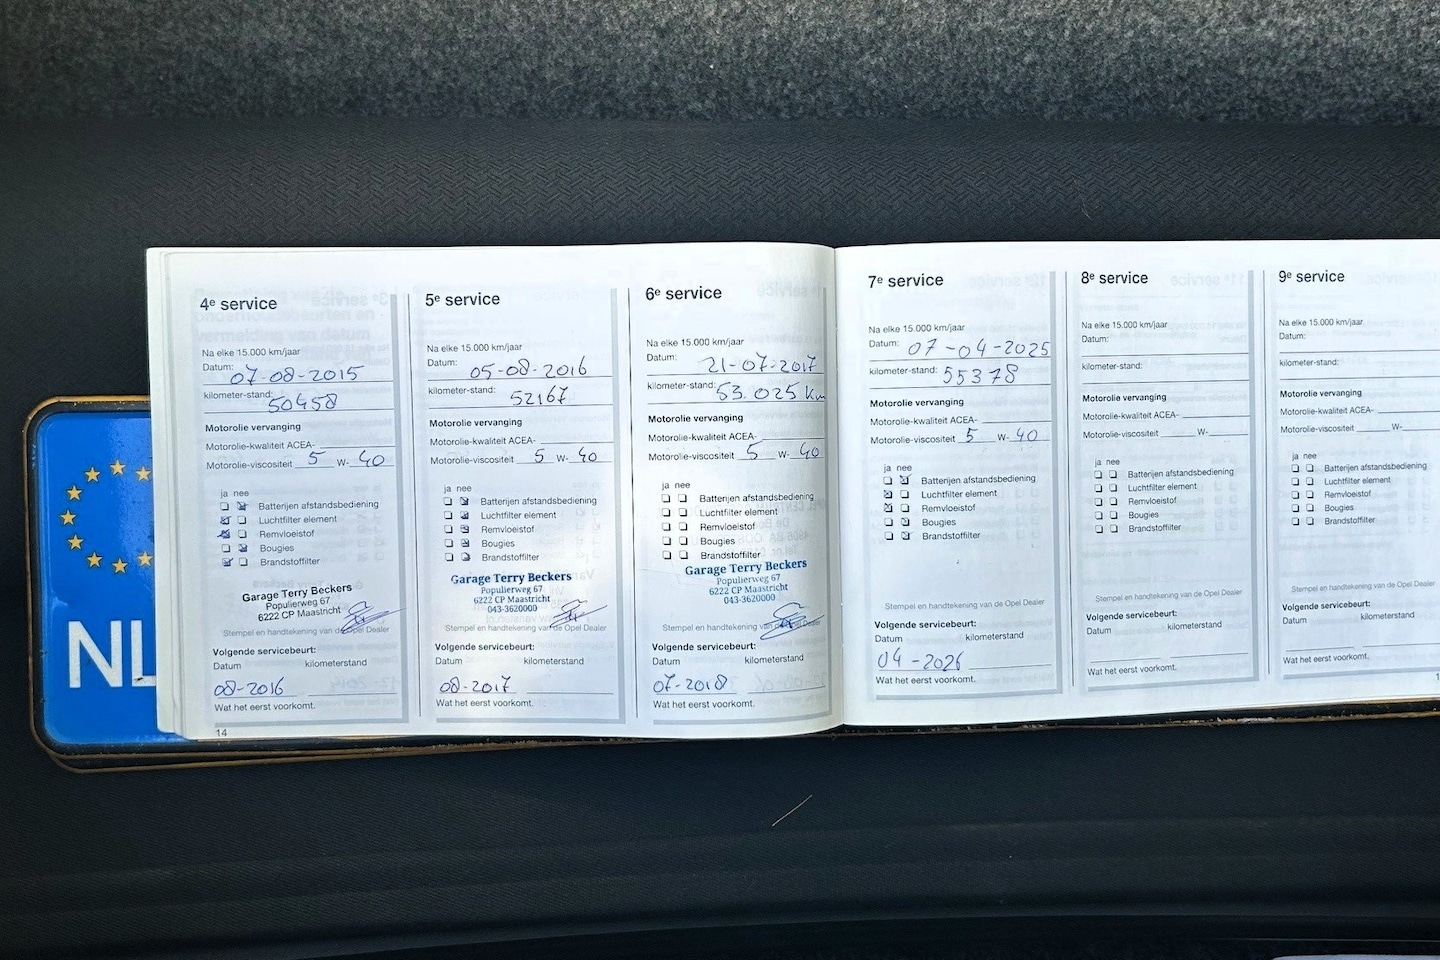 NL
4e service
Na elke 15.000 km/jaar
Datum: 07-08-2015
kilometer-stand: 50458
Motorolie vervanging
Motorolie-kwaliteit ACEA-
Motorolie-viscositeit 5 W- 40
ja nee
Batterijen afstandsbediening
Luchtfilter element
Remvloeistof
Bougies
Brandstoffilter
Garage Terry Beckers
Populierweg 67
6222 CP Maastricht
Stempel en handtekening van de Opel Dealer
Volgende servicebeurt:
Datum kilometerstand
08-2016
Wat het eerst voorkomt.
14
5e service
Na elke 15.000 km/jaar
Datum: 05-08-2016
kilometer-stand: 52167
Motorolie vervanging
Motorolie-kwaliteit ACEA-
Motorolie-viscositeit 5 W- 40
ja nee
Batterijen afstandsbediening
Luchtfilter element
Remvloeistof
Bougies
Brandstoffilter
Garage Terry Beckers
Populierweg 67
6222 CP Maastricht
043-3620000
Stempel en handtekening van de Opel Dealer
Volgende servicebeurt:
Datum kilometerstand
08-2017
Wat het eerst voorkomt.
6e service
Na elke 15.000 km/jaar
Datum: 21-07-2017
kilometer-stand: 53.025 km
Motorolie vervanging
Motorolie-kwaliteit ACEA-
Motorolie-viscositeit 5 W- 40
ja nee
Batterijen afstandsbediening
Luchtfilter element
Remvloeistof
Bougies
Brandstoffilter
Garage Terry Beckers
Populierweg 67
6222 CP Maastricht
043-3620000
Stempel en handtekening van de Opel Dealer
Volgende servicebeurt:
Datum kilometerstand
07-2018
Wat het eerst voorkomt.
7e service
Na elke 15.000 km/jaar
Datum: 07-04-2025
kilometer-stand: 55378
Motorolie vervanging
Motorolie-kwaliteit ACEA-
Motorolie-viscositeit 5 W- 40
ja nee
Batterijen afstandsbediening
Luchtfilter element
Remvloeistof
Bougies
Brandstoffilter
Stempel en handtekening van de Opel Dealer
Volgende servicebeurt:
Datum kilometerstand
04-2026
Wat het eerst voorkomt.
8e service
Na elke 15.000 km/jaar
Datum:
kilometer-stand:
Motorolie vervanging
Motorolie-kwaliteit ACEA-
Motorolie-viscositeit W-
ja nee
Batterijen afstandsbediening
Luchtfilter element
Remvloeistof
Bougies
Brandstoffilter
Stempel en handtekening van de Opel Dealer
Volgende servicebeurt:
Datum kilometerstand
Wat het eerst voorkomt.
9e service
Na elke 15.000 km/jaar
Datum:
kilometer-stand:
Motorolie vervanging
Motorolie-kwaliteit ACEA-
Motorolie-viscositeit W-
ja nee
Batterijen afstandsbediening
Luchtfilter element
Remvloeistof
Bougies
Brandstoffilter
Stempel en handtekening van de Opel Dealer
Volgende servicebeurt:
Datum kilometerstand
Wat het eerst voorkomt.